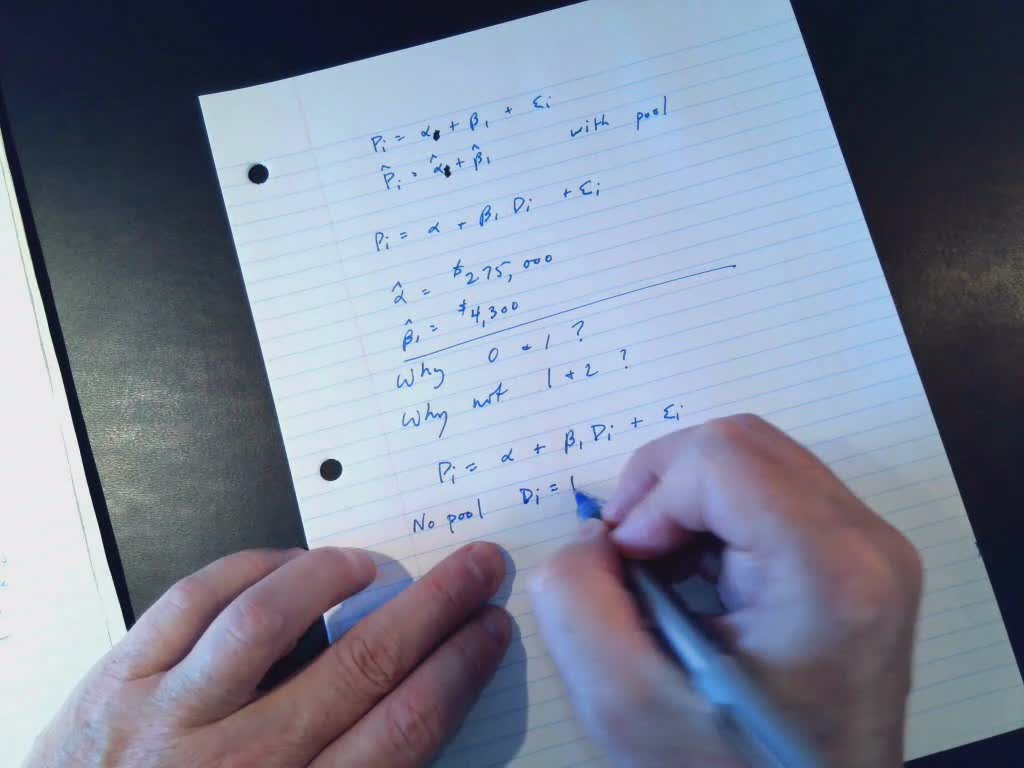 Pi = α + β1 + εi
P̂i = α̂ + β̂1 with pool
Pi = α + β1 Di + εi
α̂ = $275,000
β̂1 = $4,300
Why 0 + 1 ?
Why not 1 + 2 ?
Pi = α + β1 Di + εi
No pool Di = 1